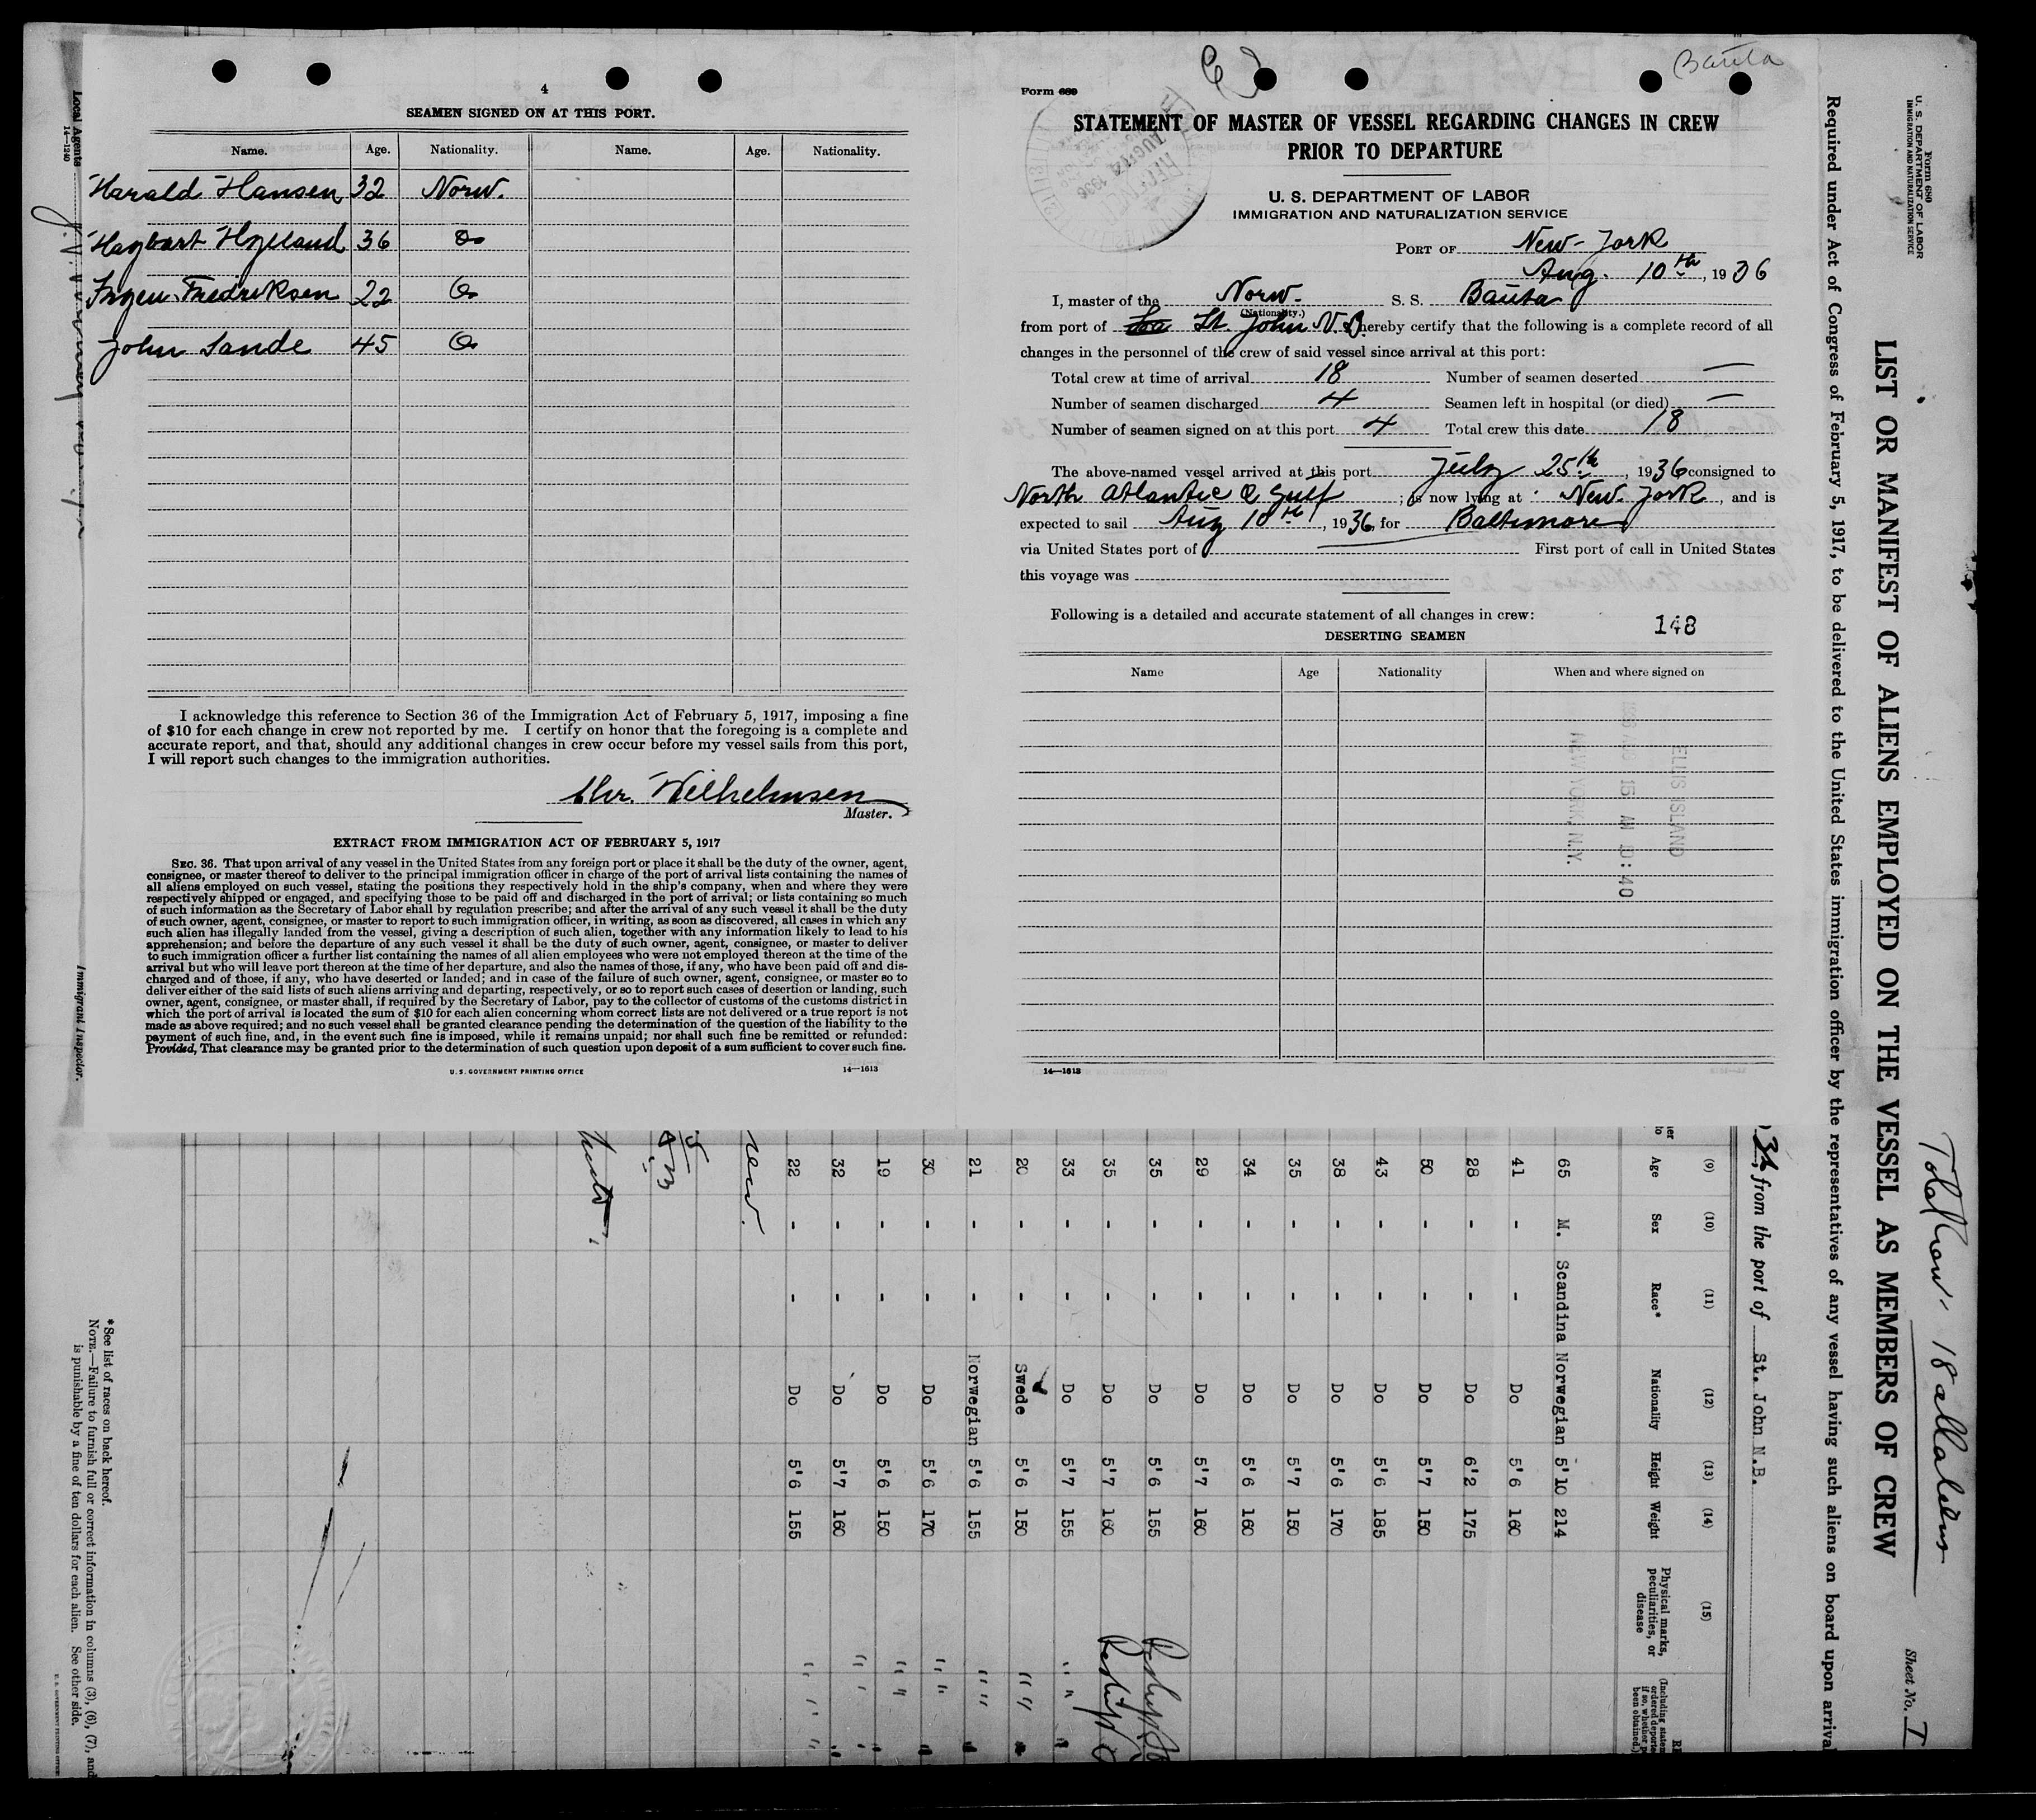 4
SEAMEN SIGNED ON AT THIS PORT.
Name. Age. Nationality. Name. Age. Nationality.
Harald Hansen 32 Norw.
36 Do
Fredriksen 22 Do
John Sande 45 Do
I acknowledge this reference to Section 36 of the Immigration Act of February 5, 1917, imposing a fine
of $10 for each change in crew not reported by me. I certify on honor that the foregoing is a complete and
accurate report, and that, should any additional changes in crew occur before my vessel sails from this port,
I will report such changes to the immigration authorities.
Chr. Wilhelmsen
Master.
EXTRACT FROM IMMIGRATION ACT OF FEBRUARY 5, 1917
SEC. 36. That upon arrival of any vessel in the United States from any foreign port or place it shall be the duty of the owner, agent,
consignee, or master thereof to deliver to the principal immigration officer in charge of the port of arrival lists containing the names of
all aliens employed on such vessel, stating the positions they respectively hold in the ship's company, when and where they were
respectively shipped or engaged, and specifying those to be paid off and discharged in the port of arrival; or lists containing so much
of such information as the Secretary of Labor shall by regulation prescribe; and after the arrival of any such vessel it shall be the duty
of such owner, agent, consignee, or master to report to such immigration officer, in writing, as soon as discovered, all cases in which any
such alien has illegally landed from the vessel, giving a description of such alien, together with any information likely to lead to his
apprehension; and before the departure of any such vessel it shall be the duty of such owner, agent, consignee, or master to deliver
to such immigration officer a further list containing the names of all alien employees who were not employed thereon at the time of the
arrival but who will leave port thereon at the time of her departure, and also the names of those, if any, who have been paid off and dis-
charged and of those, if any, who have deserted or landed; and in case of the failure of such owner, agent, consignee, or master so to
deliver either of the said lists of such aliens arriving and departing, respectively, or so to report such cases of desertion or landing, such
owner, agent, consignee, or master shall, if required by the Secretary of Labor, pay to the collector of customs of the customs district in
which the port of arrival is located the sum of $10 for each alien concerning whom correct lists are not delivered or a true report is not
made as above required; and no such vessel shall be granted clearance pending the determination of the question of the liability to the
payment of such fine, and, in the event such fine is imposed, while it remains unpaid; nor shall such fine be remitted or refunded:
Provided, That clearance may be granted prior to the determination of such question upon deposit of a sum sufficient to cover such fine.
U. S. GOVERNMENT PRINTING OFFICE 14—1613
Bauta
Form 689
STATEMENT OF MASTER OF VESSEL REGARDING CHANGES IN CREW
PRIOR TO DEPARTURE
U. S. DEPARTMENT OF LABOR
IMMIGRATION AND NATURALIZATION SERVICE
PORT OF New-York
Aug. 10th, 1936
I, master of the Norw. S. S. Bauta
(Nationality.)
from port of St. John N.B. hereby certify that the following is a complete record of all
changes in the personnel of the crew of said vessel since arrival at this port:
Total crew at time of arrival 18 Number of seamen deserted —
Number of seamen discharged 4 Seamen left in hospital (or died) —
Number of seamen signed on at this port 4 Total crew this date 18
The above-named vessel arrived at this port July 25th, 1936 consigned to
North Atlantic & Gulf; is now lying at New York, and is
expected to sail Aug 10th, 1936, for Baltimore
via United States port of First port of call in United States
this voyage was
Following is a detailed and accurate statement of all changes in crew:
148
DESERTING SEAMEN
Name Age Nationality When and where signed on
ELLIS ISLAND
1936 AUG 15 AM 10:40
NEW YORK, N.Y.
14—1613
Form 680
U. S. DEPARTMENT OF LABOR
IMMIGRATION AND NATURALIZATION SERVICE
Total crew 18 all aliens
Sheet No. 1
LIST OR MANIFEST OF ALIENS EMPLOYED ON THE VESSEL AS MEMBERS OF CREW
Required under Act of Congress of February 5, 1917, to be delivered to the United States immigration officer by the representatives of any vessel having such aliens on board upon arrival
36, from the port of St. John N.B.
(9) (10) (11) (12) (13) (14) (15)
Age Sex Race* Nationality Height Weight Physical marks, peculiarities, or disease
65 M. Scandina Norwegian 5'10 214
41 - - Do 5'6 160
28 - - Do 6'2 175
50 - - Do 5'7 150
43 - - Do 5'6 185
38 - - Do 5'6 170
35 - - Do 5'7 150
34 - - Do 5'6 160
29 - - Do 5'7 160
35 - - Do 5'6 155
35 - - Do 5'7 160
33 - - Do 5'7 155 " "
20 - - Swede 5'6 150 " "
21 - - Norwegian 5'6 155 " "
30 - - Do 5'6 170 " "
19 - - Do 5'6 150 " "
32 - - Do 5'7 160 " "
22 - - Do 5'6 155 " "
*See list of races on back hereof.
NOTE.—Failure to furnish full or correct information in columns (3), (6), (7), and
is punishable by a fine of ten dollars for each alien. See other side.
Local Agents
14—1240
Immigrant Inspector.